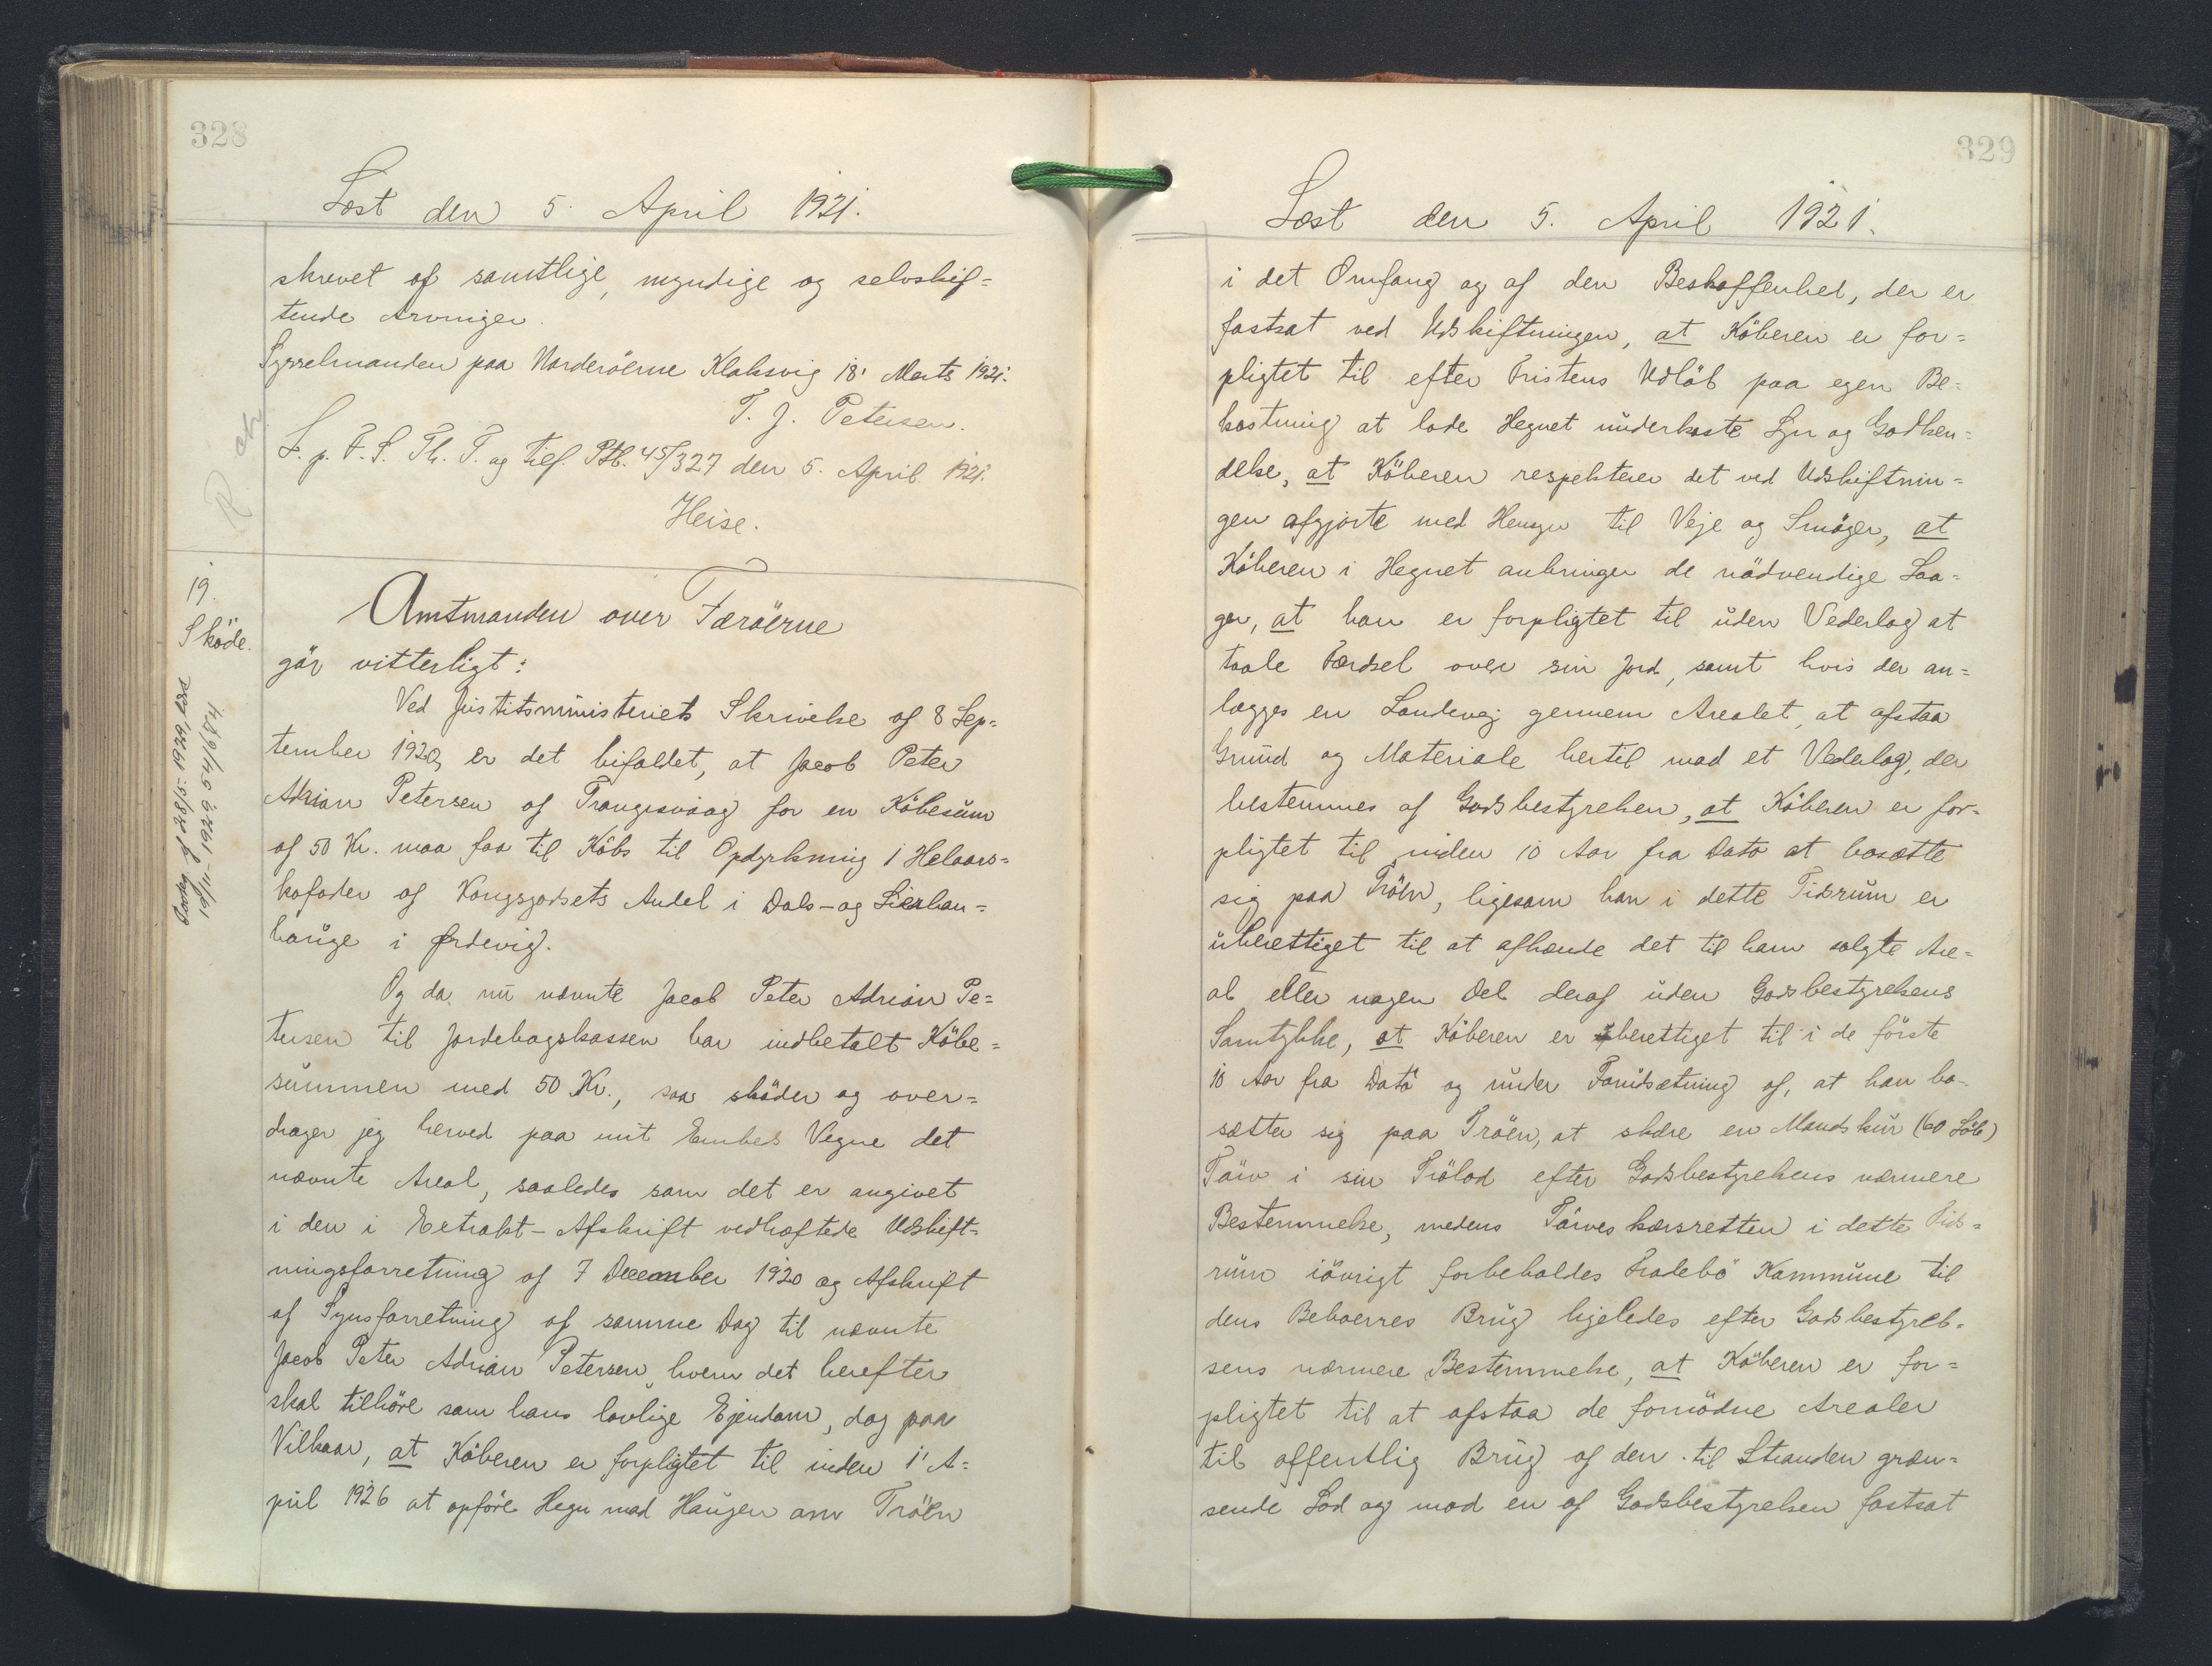 328
Læst den 5. April 1921.
skrevet af samtlige, myndige og selvskif=
tende Arvinger.
Sysselmanden paa Norderöerne Klaksvig 18' Marts 1921.
T. J. Petersen.
L. p. F. S. Th. T. og Tilf. Ptb. 45/327 den 5. April 1921.
Heise.
R.
19.
Sköde.
Amtmanden over Færöerne
gör vitterligt:
Ved Justitsministeriets Skrivelse af 8 Sep=
tember 1920, er det bifaldet, at Jacob Peter
Adrian Petersen af Trangisvaag for en Köbesum
af 50 Kr. maa faa til Köbs til Opdyrkning 1 Helaars=
kofoder af Kongsgodsets Andel i Dals- og
hauge i Ørdevig.
Og da nu nævnte Jacob Peter Adrian Pe=
tersen til Jordebogskassen har indbetalt Köbe=
summen med 50 Kr., saa sköder og over=
drager jeg herved paa mit Embeds Vegne det
nævnte Areal, saaledes som det er angivet
i den i Extrakt-Afskrift vedhæftede Udskift=
ningsforretning af 7 December 1920 og Afskrift
af Synsforretning af samme Dag til nævnte
Jacob Peter Adrian Petersen, hvem det herefter
skal tilhöre som hans lovlige Ejendom, dog paa
Vilkaar, at Köberen er forpligtet til inden 1' A=
pril 1926 at opföre Hegn mod Haugen om Tröen
329
Læst den 5. April 1921.
i det Omfang og af den Beskaffenhed, der er
fastsat ved Udskiftningen, at Köberen er for=
pligtet til efter Fristens Udlöb paa egen Be=
kostning at lade Hegnet underkaste Syn og Godken=
delse, at Köberen respekterer det ved Udskiftnin=
gen afgjorte med Hensyn til Veje og Smöger, at
Köberen i Hegnet anbringer de nödvendige Laa=
ger, at han er forpligtet til uden Vederlag at
taale Færdsel over sin Jord, samt hvis der an=
lægges en Landevej gennem Arealet, at afstaa
Grund og Materiale hertil mod et Vederlag, der
bestemmes af Godsbestyrelsen, at Köberen er for-
pligtet til inden 10 Aar fra Dato at bosætte
sig paa Tröen, ligesom han i dette Tidsrum er
uberettiget til at afhænde det til ham solgte Are=
al eller nogen Del deraf uden Godsbestyrelsens
Samtykke, at Köberen er berettiget til i de förste
10 Aar fra Dato og under Forudsætning af, at han bo-
sætter sig paa Tröen, at skære en Mandskur (60 Löb)
Törv i sin Trölod efter Godsbestyrelsens nærmere
Bestemmelse, medens Törveskærsretten i dette Tids=
rum iövrigt forbeholdes Frodebö Kommune til
dens Beboerres Brug ligeledes efter Godsbestyrel-
sens nærmere Bestemmelse, at Köberen er for=
pligtet til at afstaa de fornödne Arealer
til offentlig Brug af den til Stranden græn=
sende Lod og mod en af Godsbestyrelsen fastsat